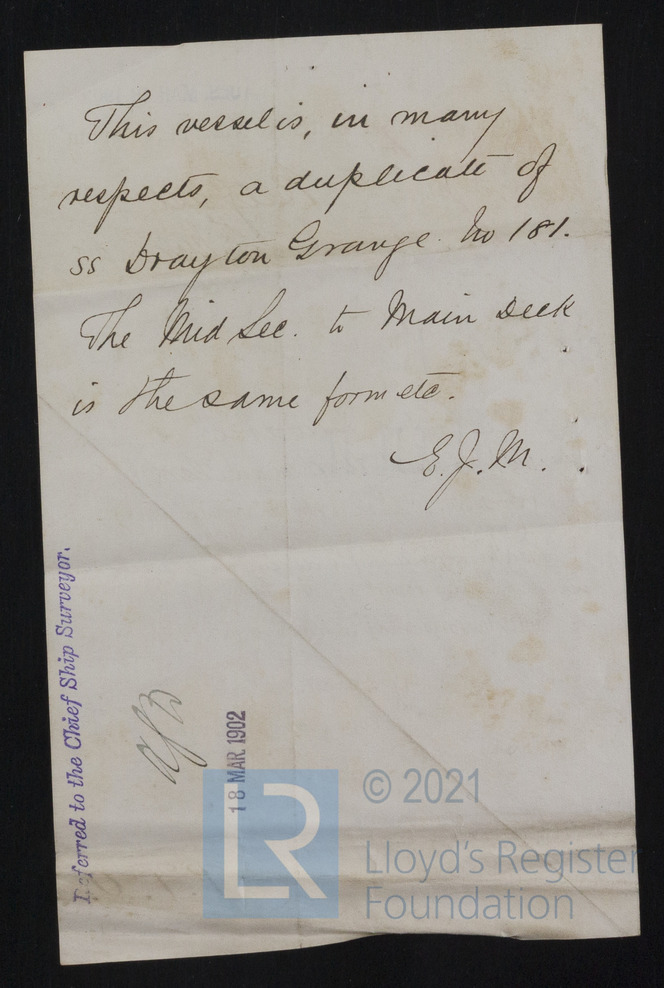 This vessel is, in many
respects, a duplicate of
ss Drayton Grange No 181.
The Mid Sec. to Main Deck
is the same form etc.
E. J. M.
Referred to the Chief Ship Surveyor.
18 MAR. 1902
LR
© 2021
Lloyd's Register
Foundation